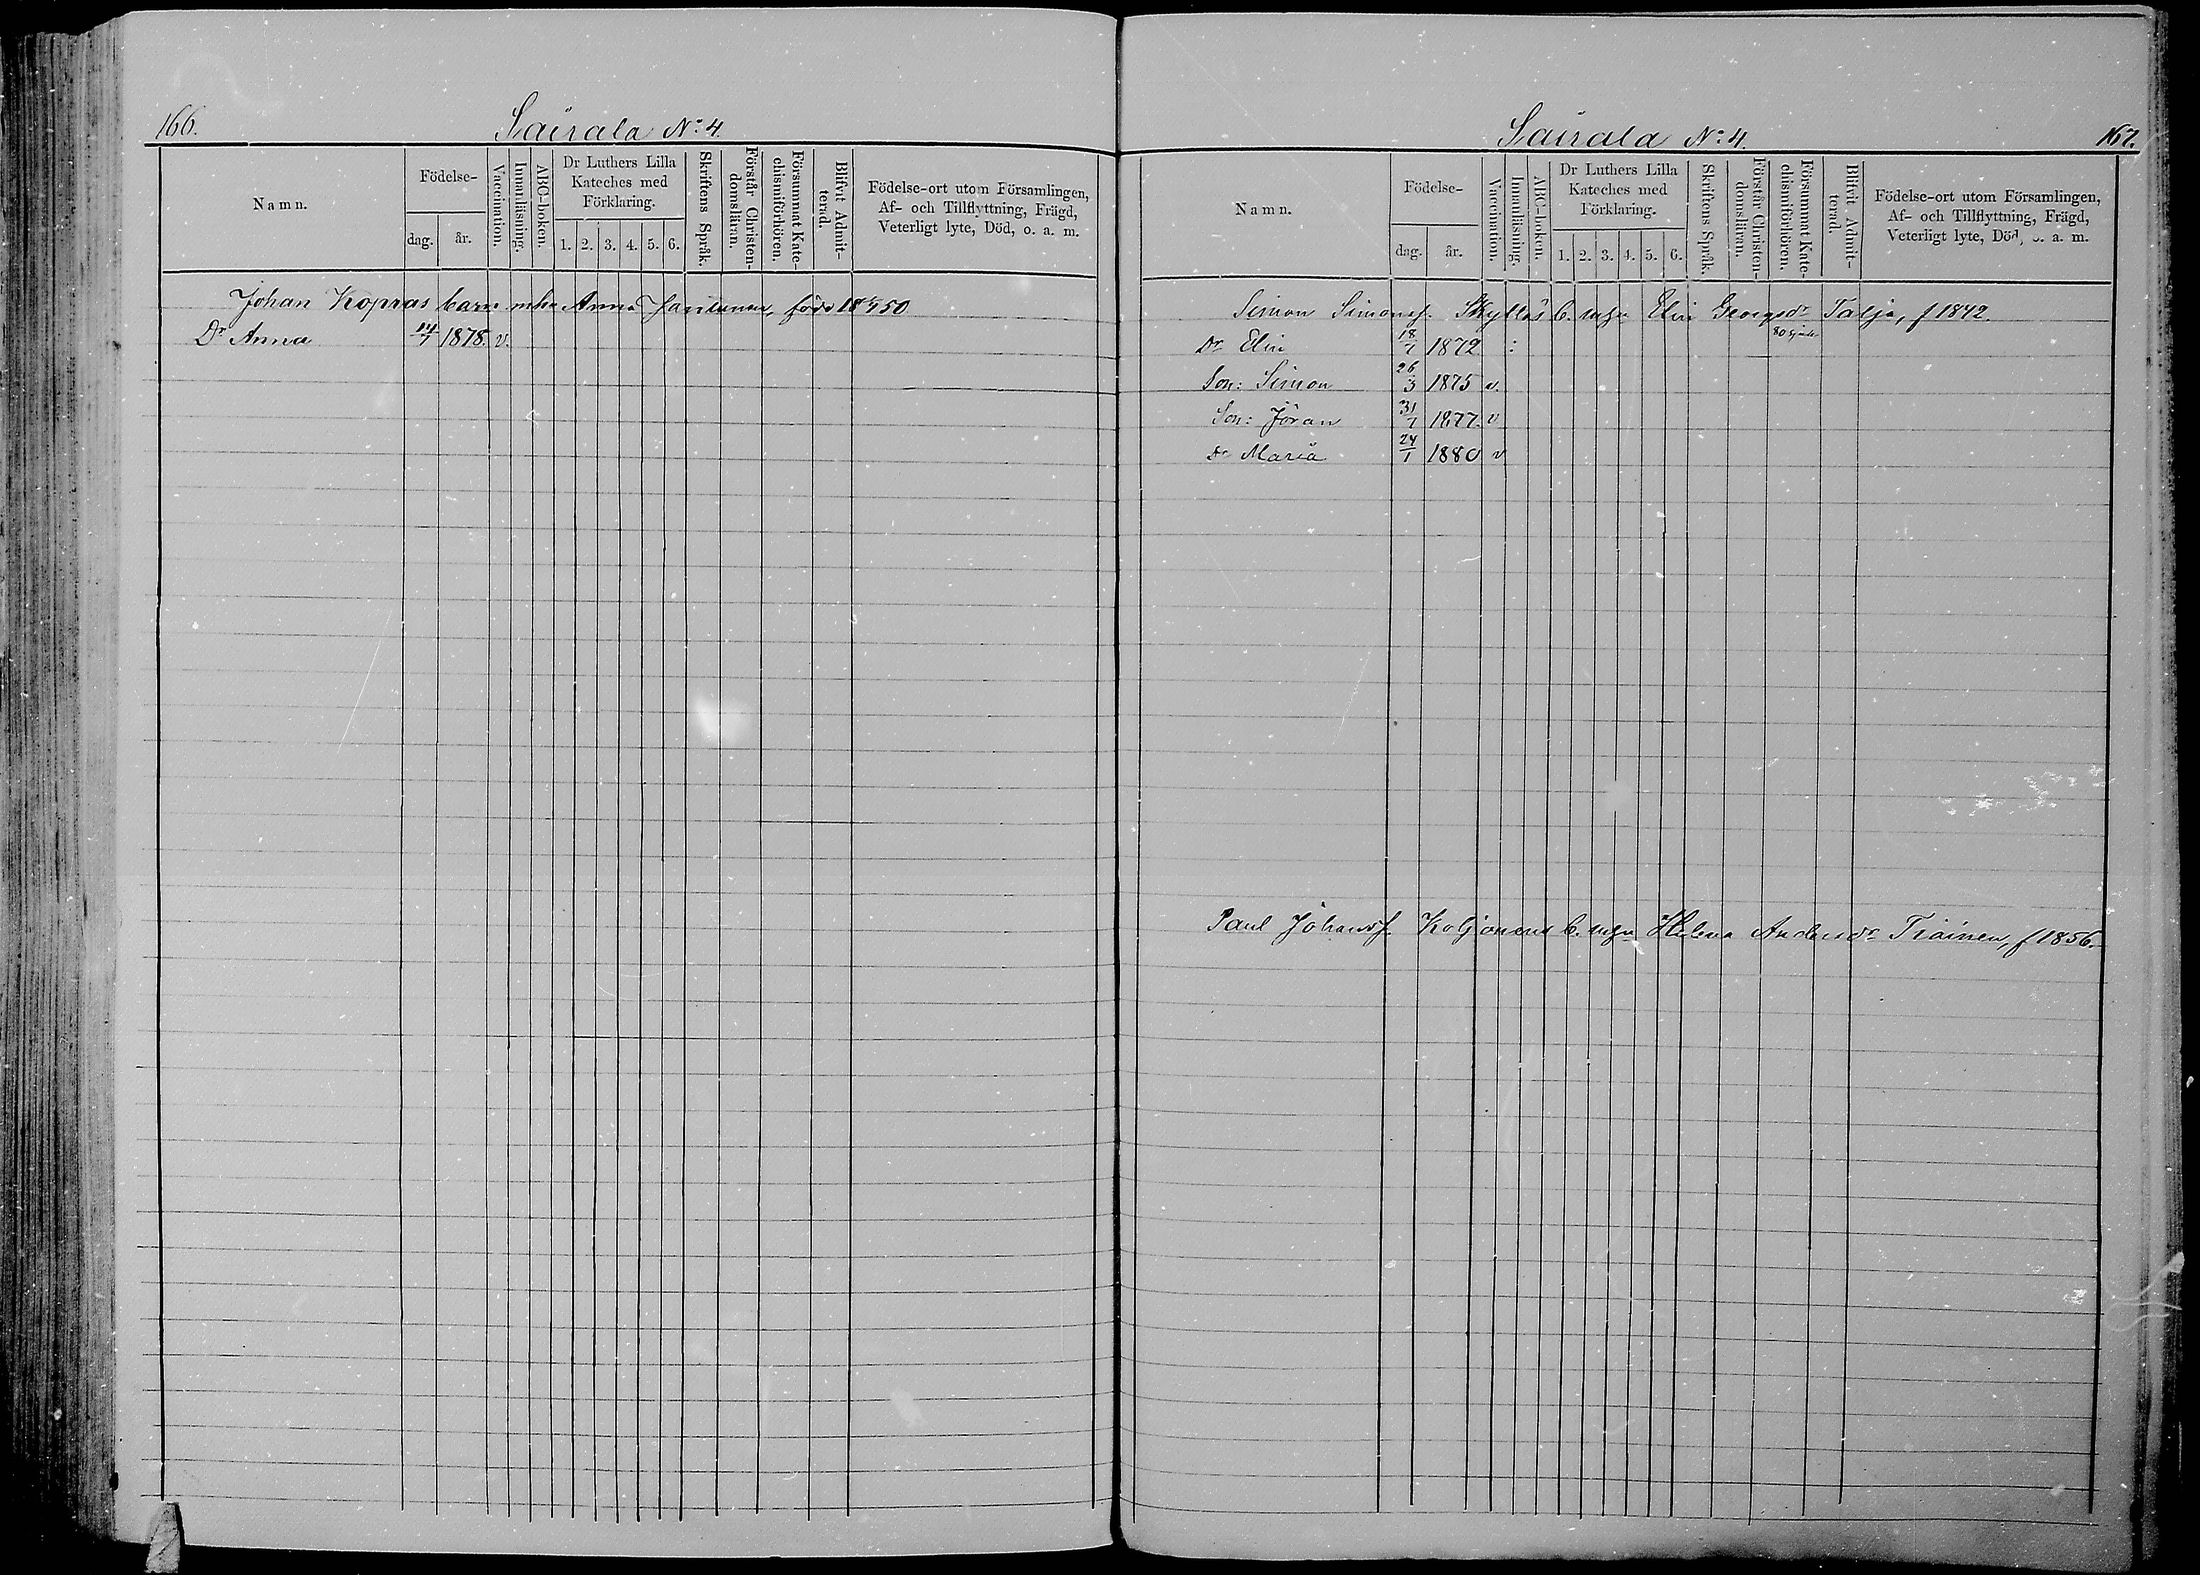 166.
Sairala No 4.
Namn.
Födelse-
dag.
år.
Vaccination.
Innanläsning.
ABC-boken.
Dr Luthers Lilla
Kateches med
Förklaring.
1. 2. 3. 4. 5. 6.
Skriftens Språk.
Förstår Christen-
domsläran.
Försummat Kate-
chismiförhören.
Blifvit Admit-
terad.
Födelse-ort utom Församlingen,
Af- och Tillflyttning, Frägd,
Veterligt lyte, Död, o. a. m.
Johan Kopras barn mhu Anna Jantunen, född 18 50
Dr Anna 14/7 1878. v.
Sairala No 4.
167.
Namn.
Födelse-
dag.
år.
Vaccination.
Innanläsning.
ABC-boken.
Dr Luthers Lilla
Kateches med
Förklaring.
1. 2. 3. 4. 5. 6.
Skriftens Språk.
Förstår Christen-
domsläran.
Försummat Kate-
chismiförhören.
Blifvit Admit-
terad.
Födelse-ort utom Församlingen,
Af- och Tillflyttning, Frägd,
Veterligt lyte, Död, o. a. m.
Simon Simonsf. Skyttös b. Elin Georgsdr Talja, f 1842.
Dr Elin 18/7 1872 :
Son: Simon 26/3 1875 v.
Son: Jöran 31/7 1877. v
Dr Maria 24/1 1880 v
Paul Johansf. Koljonens b. Helena Andersdr Tiainen, f 1856.